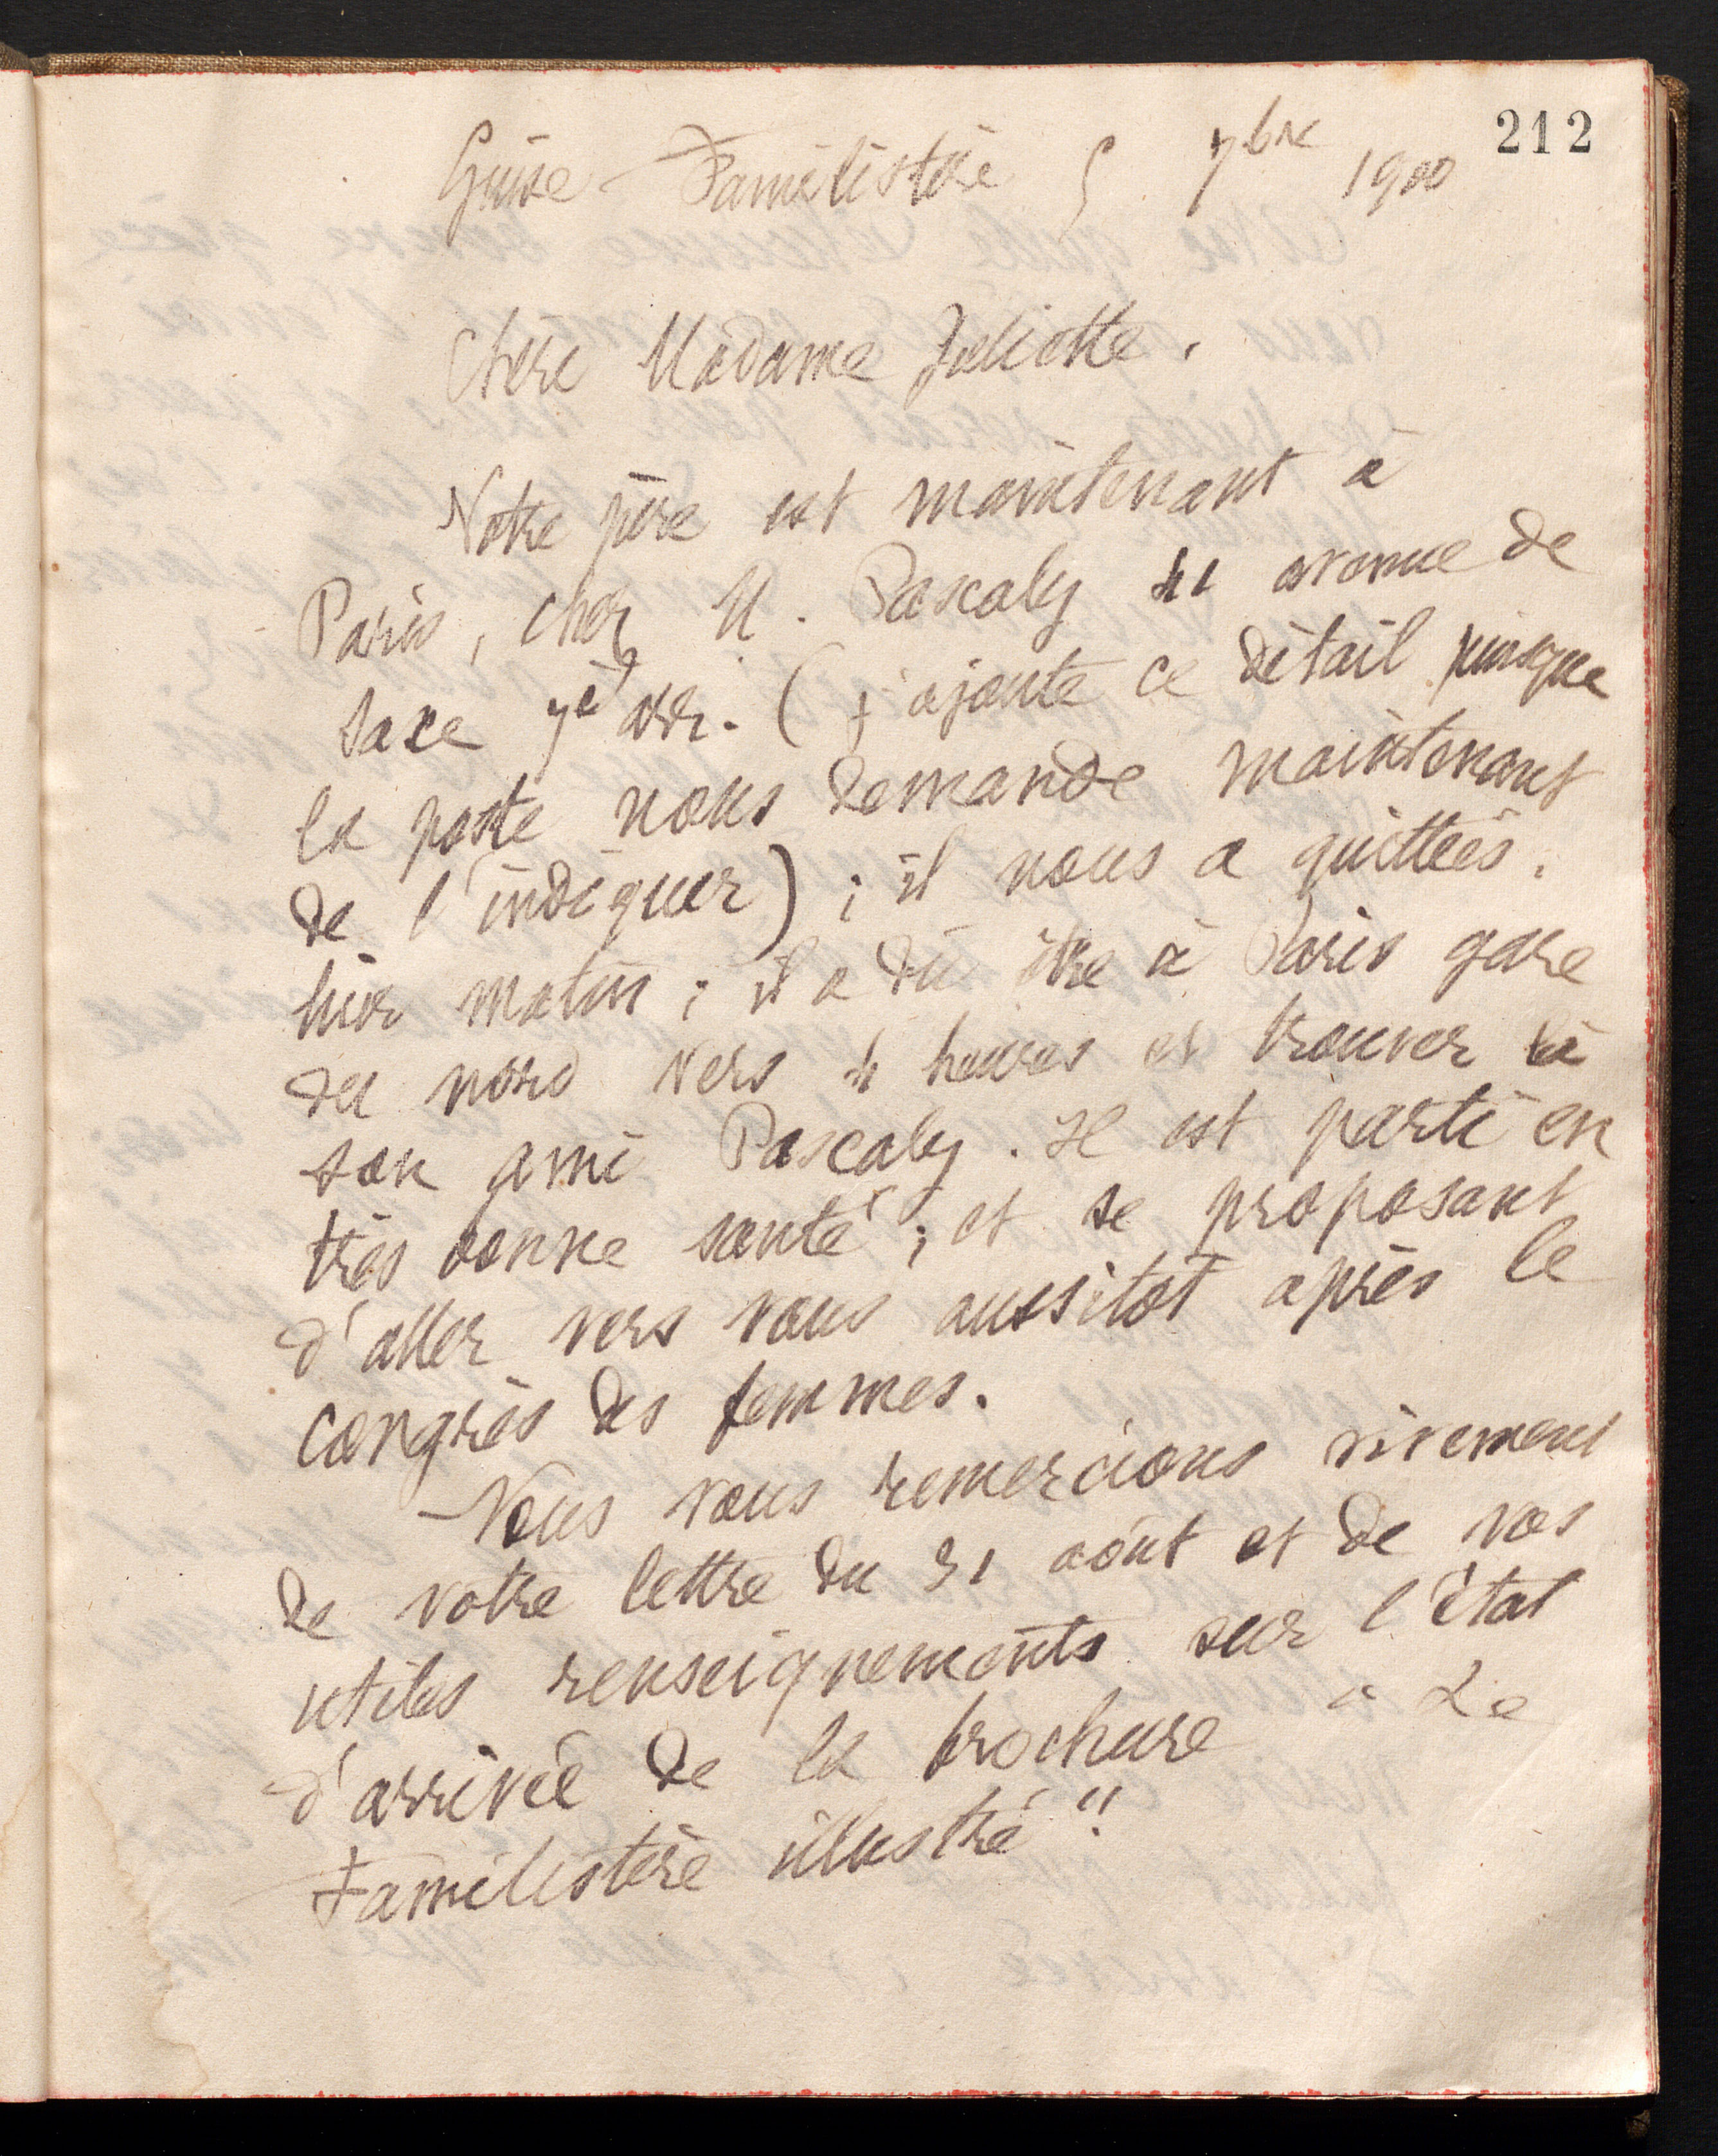 212
Guise-Familistère 5 7bre 1900
Chère Madame Juliette.
Notre père est maintenant à
Paris, chez M. Pascaly 41 avenue de
Saxe 7e arr. (j'ajoute ce détail puisque
la poste nous demande maintenant
de l'indiquer); il nous a quittées.
hier matin; il a dû être à Paris gare
du nord vers 4 heures et trouver là
son ami Pascaly. Il est parti en
très bonne santé; et se proposant
d'aller vers vous aussitôt après le
congrès des femmes.
Nous vous remercions vivement
de votre lettre du 31 août et de vos
utiles renseignements sur l'état
d'arrivée de la brochure "Le
Familistère illustré".